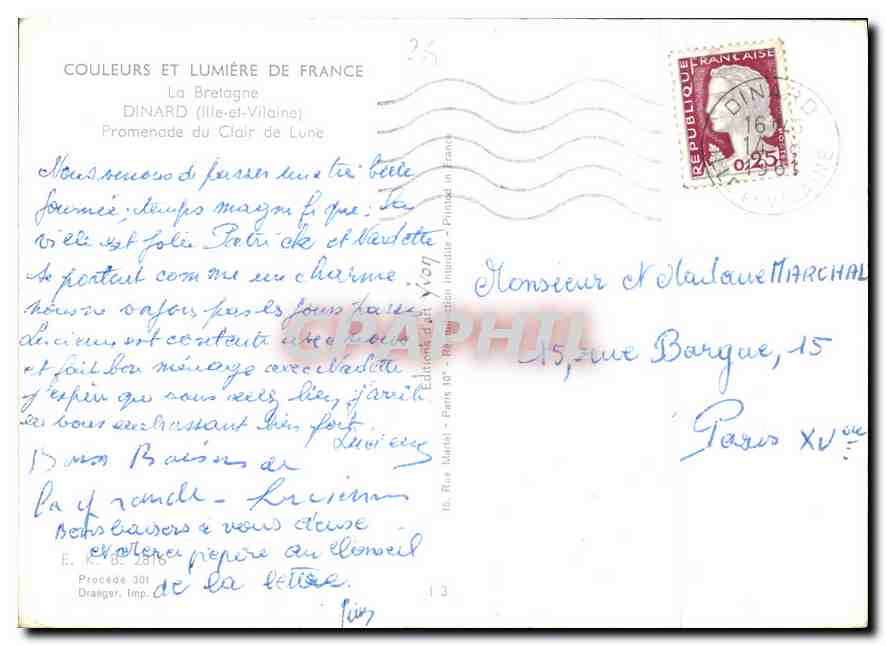 COULEURS ET LUMIÈRE DE FRANCE
La Bretagne
DINARD (Ille-et-Vilaine)
Promenade du Clair de Lune
Nous venons de passer une très belle
journée, temps magnifique. La
ville est jolie Patrick et Nadette
se portent comme un charme.
nous ne voyons pas les jours passer
Lucienne est contente avec nous
et fait bon ménage avec Nadette
j'espère que vous allez bien, j'arrête
en vous embrassant bien fort.
Lucienne
Bons Baisers de
la grande - Lucienne
Bons baisers à vous deuse
et pépère au Conseil
de la lettre.
E. K. B. 2816
Procédé 301
Draeger, Imp.
13
15, Rue Martel - Paris 10° - Reproduction interdite - Printed in France
Editions d'art Yvon
REPUBLIQUE FRANÇAISE
0,25
DINARD
16H
ET-VILAINE
Monsieur et Madame MARCHAL
15, rue Bargue, 15
Paris XVème
CPAPHIL